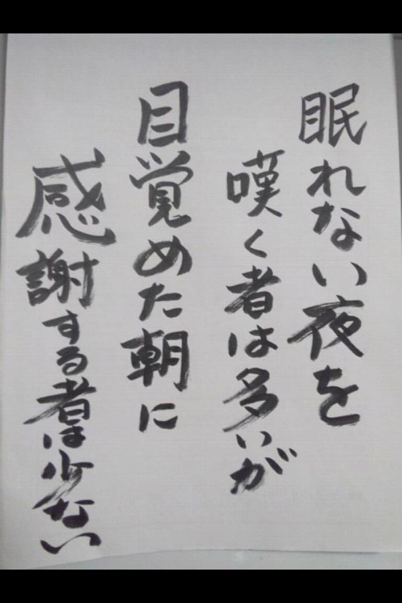 眠れない夜を
嘆く者は多いが
目覚めた朝に
感謝する者は少ない